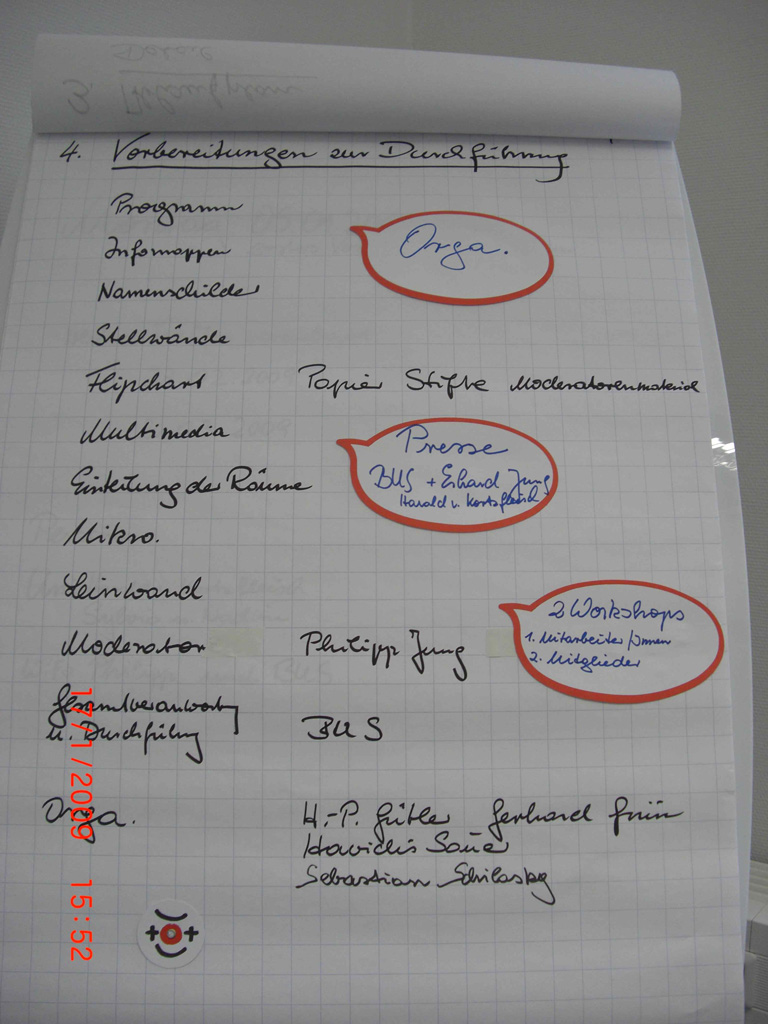 4. Vorbereitungen zur Durchführung
Programm
Infomappen
Orga.
Namenschilder
Stellwände
Flipchart Papier Stifte Moderatorenmaterial
Multimedia
Presse
BUS + Erhard Jung
Harald v.
Einteilung der Räume
Mikro.
Leinwand
2 Workshops
1. Mitarbeiter/innen
2. Mitglieder
Moderator Philipp Jung
Gesamtverantwortung
u. Durchführung BUS
Orga. H.-P. Gerhard Grün
Sebastian
17/1/2009 15:52